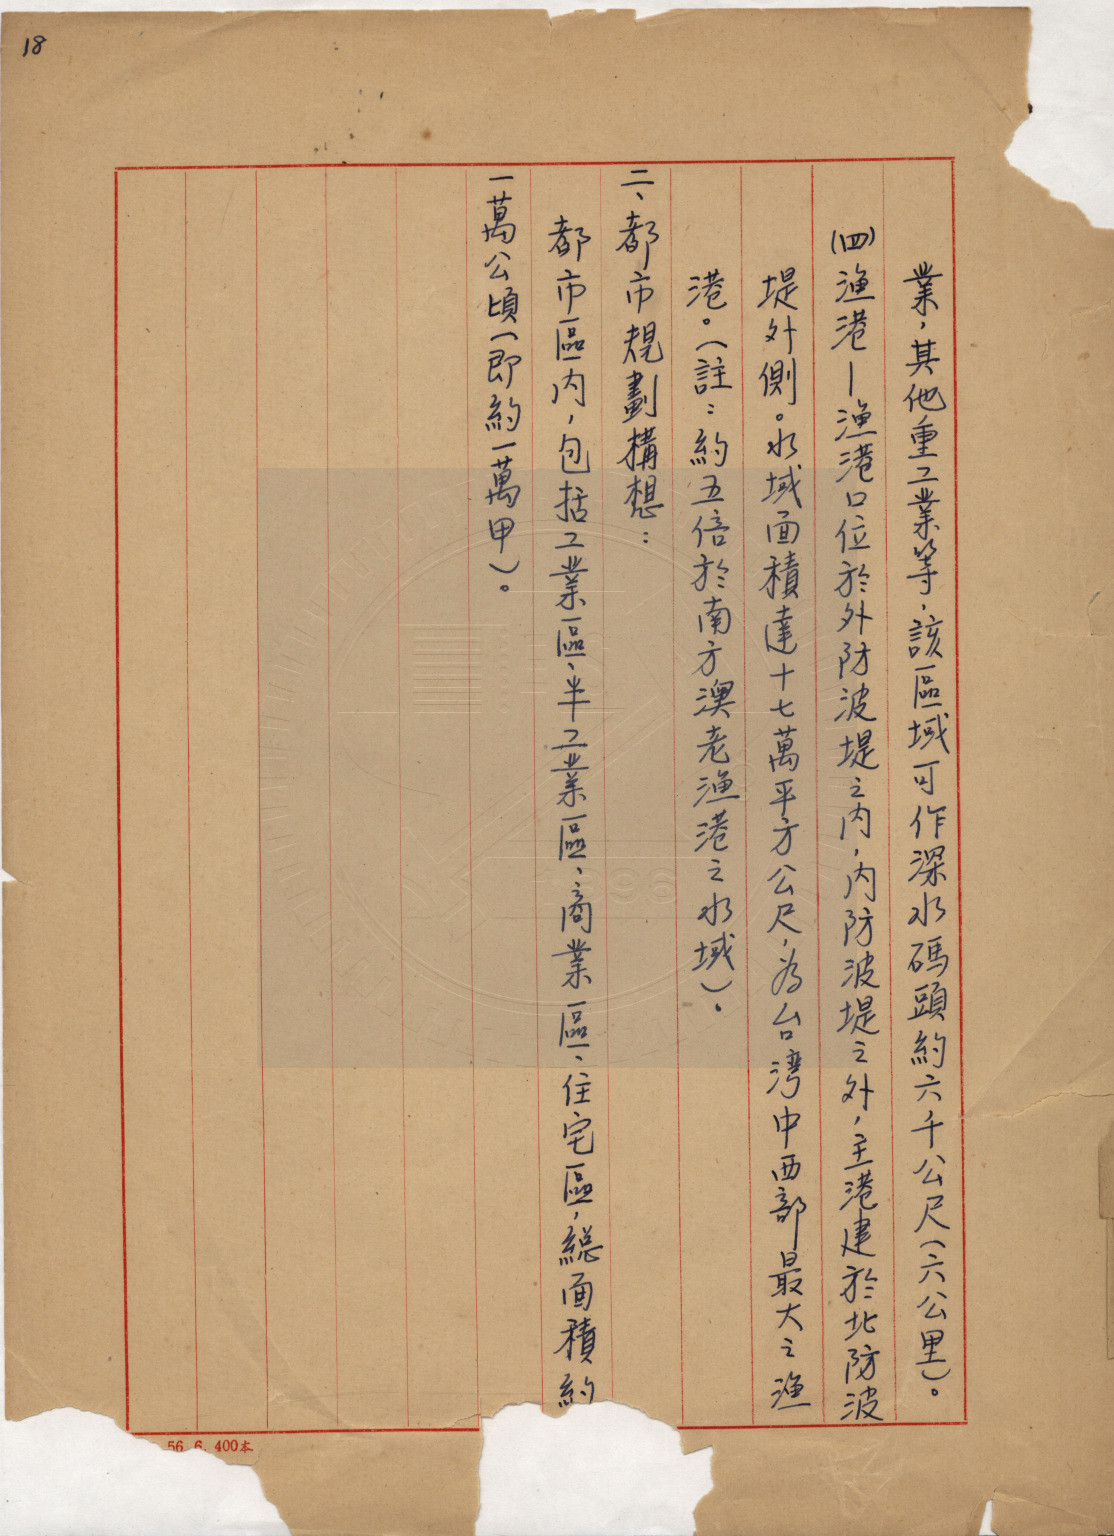 18
業，其他重工業等，該區域可作深水碼頭約六千公尺（六公里）。
(四)漁港－漁港口位於外防波堤之內，內防波堤之外，主港建於北防波
堤外側。水域面積達十七萬平方公尺，為台灣中西部最大之漁
港。（註：約五倍於南方澳老漁港之水域）。
二、都市規劃構想：
都市區內，包括工業區、半工業區、商業區、住宅區，總面積約
一萬公頃（即約一萬甲）。
56. 6. 400本
1996